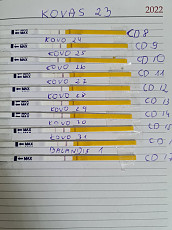 2022
KOVAS 23
CD 8
KOVO 24
CD 9
KOVO 25
CD 10
KOVO 26
CD 11
KOVO 27
CD 12
KOVO 28
CD 13
KOVO 29
CD 14
KOVO 30
CD 15
KOVO 31
CD 16
BALANDIS 1
CD 17
MAX
MAX
MAX
MAX
MAX
MAX
MAX
MAX
MAX
MAX